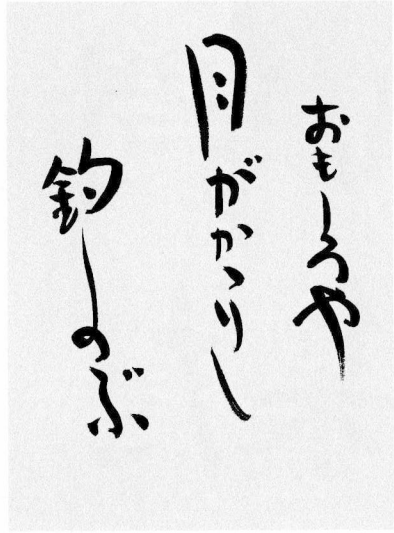 おもしろや
月がかゝりし
釣しのぶ